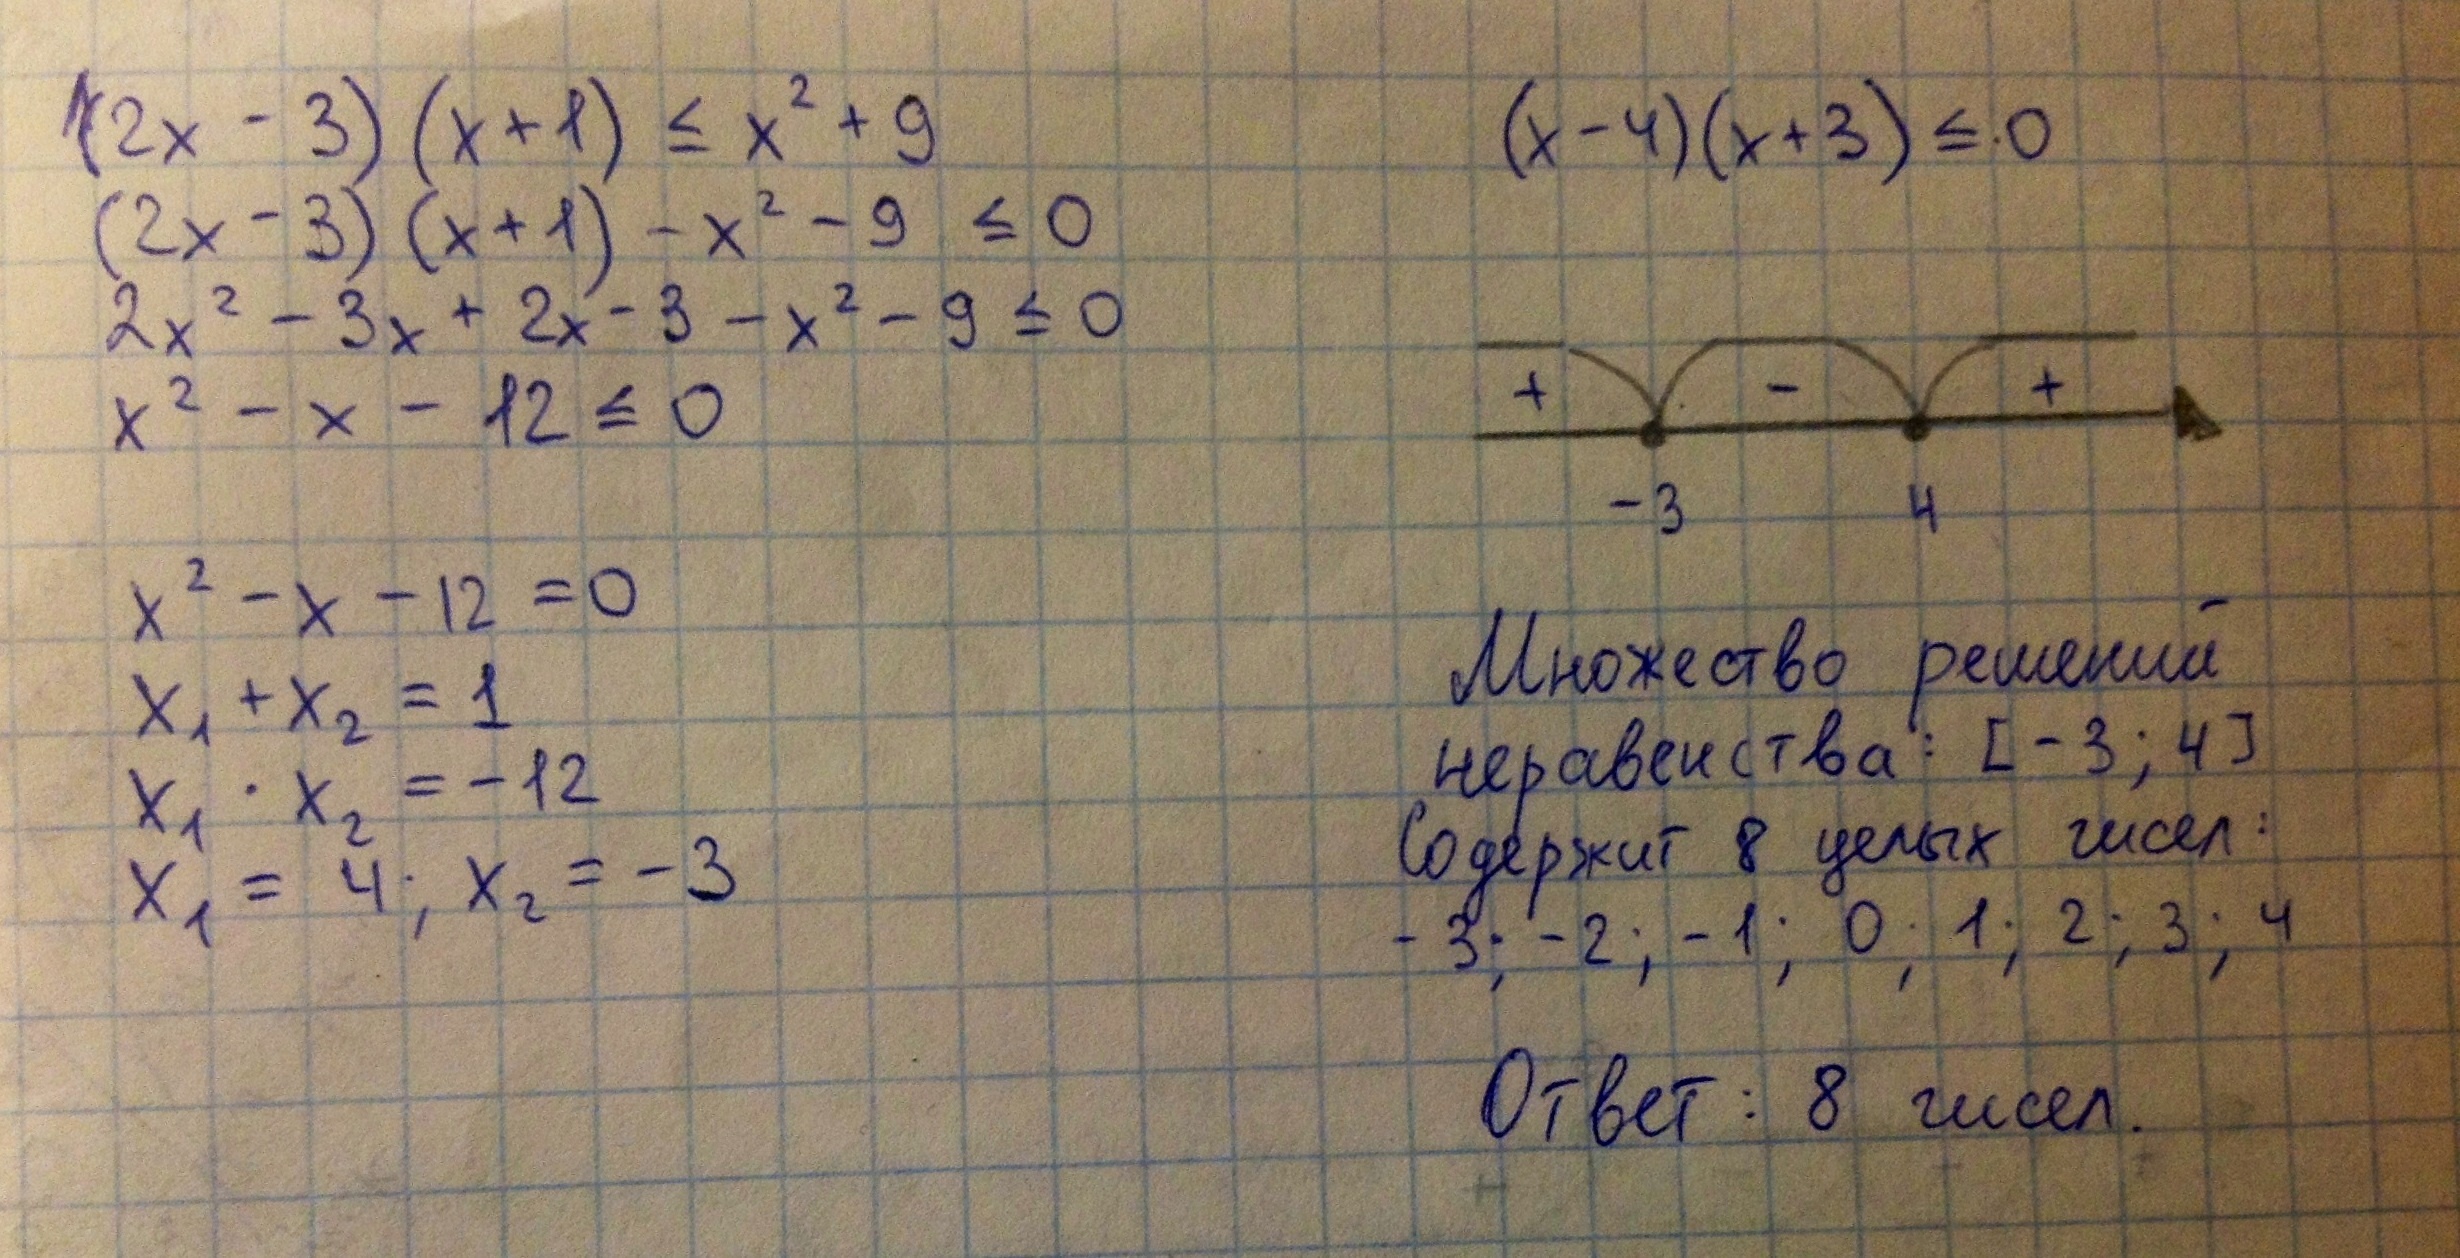 (2x - 3)(x + 1) ≤ x² + 9
(2x - 3)(x + 1) - x² - 9 ≤ 0
2x² - 3x + 2x - 3 - x² - 9 ≤ 0
x² - x - 12 ≤ 0
x² - x - 12 = 0
x₁ + x₂ = 1
x₁ · x₂ = -12
x₁ = 4; x₂ = -3
(x - 4)(x + 3) ≤ 0
+ - +
-3 4
Множество решений
неравенства: [-3; 4]
Содержит 8 целых чисел:
-3; -2; -1; 0; 1; 2; 3; 4
Ответ: 8 чисел.